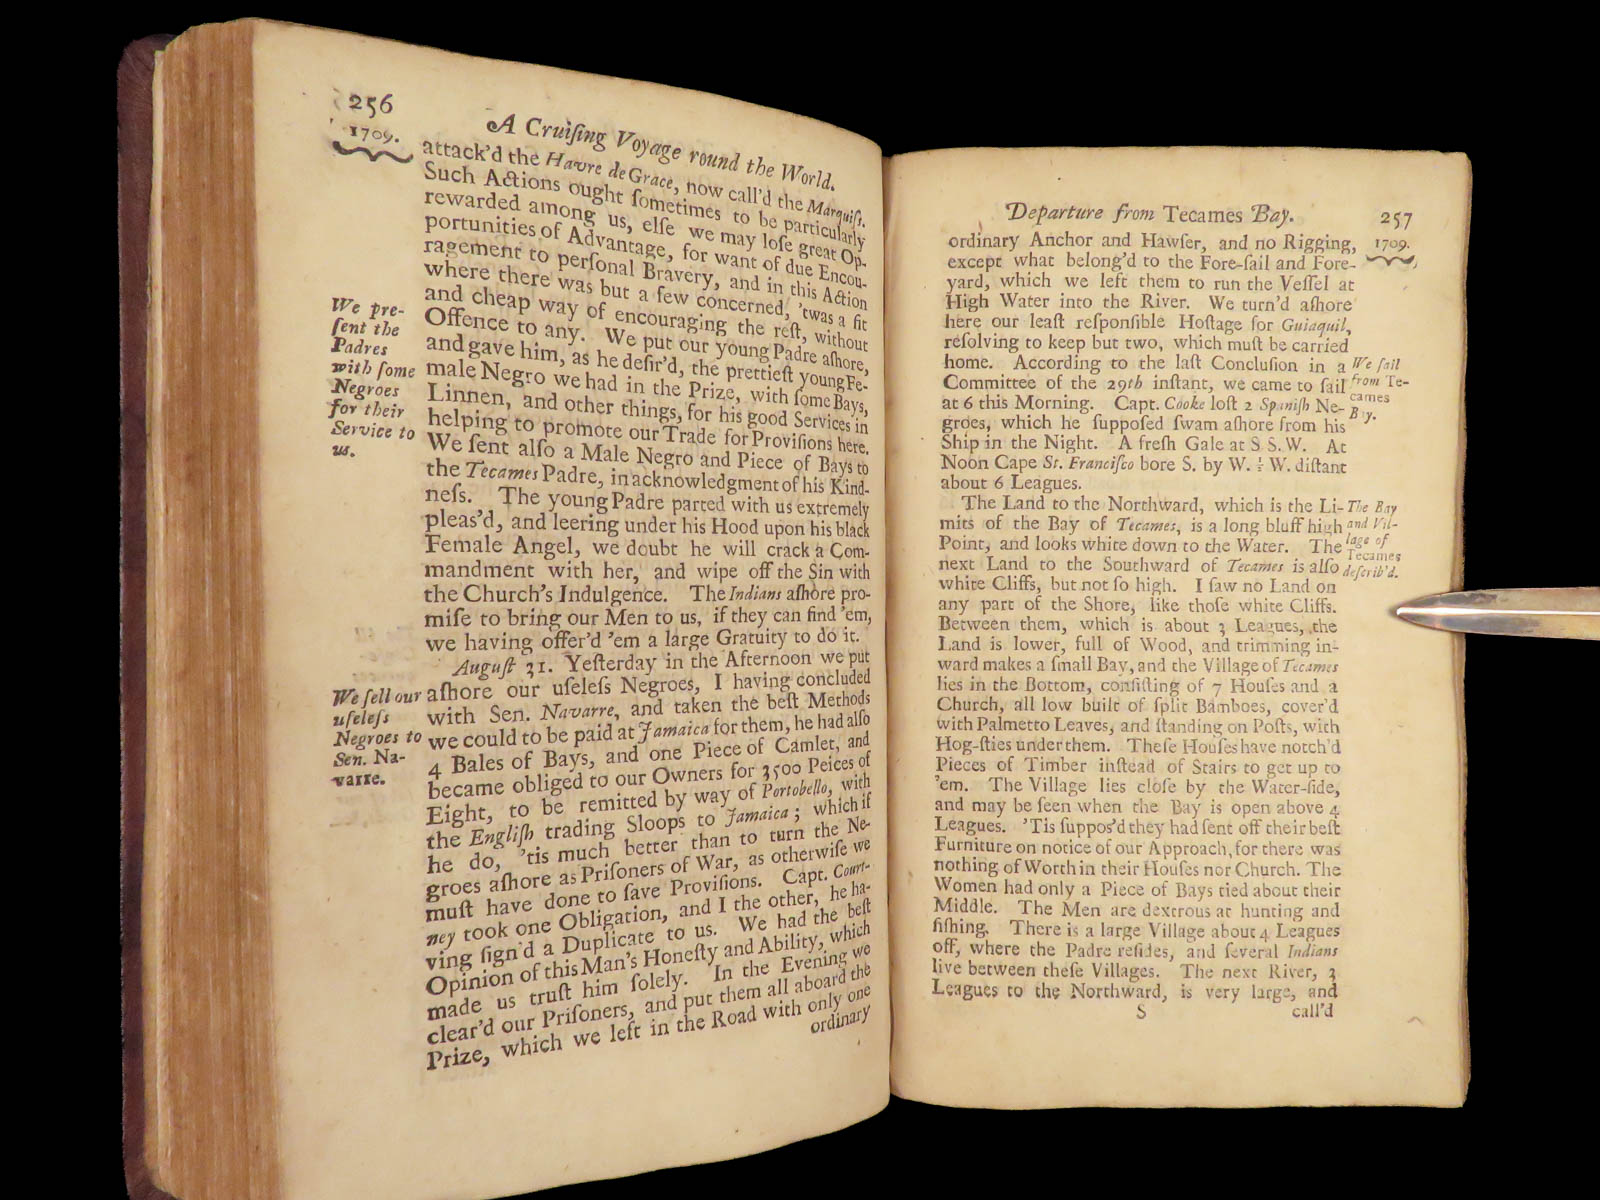 256
1709.
A Cruiſing Voyage round the World.
attack'd the Havre de Grace, now call'd the Marquiſs.
Such Actions ought ſometimes to be particularly
rewarded among us, elſe we may loſe great Op-
portunities of Advantage, for want of due Encou-
ragement to perſonal Bravery, and in this Action
where there was but a few concerned, 'twas a fit
and cheap way of encouraging the reſt, without
Offence to any. We put our young Padre aſhore,
and gave him, as he deſir'd, the prettieſt young Fe-
male Negro we had in the Prize, with ſome Bays,
Linnen, and other things, for his good Services in
helping to promote our Trade for Proviſions here.
We ſent alſo a Male Negro and Piece of Bays to
the Tecames Padre, in acknowledgment of his Kind-
neſs. The young Padre parted with us extremely
pleas'd, and leering under his Hood upon his black
Female Angel, we doubt he will crack a Com-
mandment with her, and wipe off the Sin with
the Church's Indulgence. The Indians aſhore pro-
miſe to bring our Men to us, if they can find 'em,
we having offer'd 'em a large Gratuity to do it.
We pre-
ſent the
Padres
with ſome
Negroes
for their
Service to
us.
Auguſt 31. Yeſterday in the Afternoon we put
aſhore our uſeleſs Negroes, I having concluded
with Sen. Navarre, and taken the beſt Methods
we could to be paid at Jamaica for them, he had alſo
4 Bales of Bays, and one Piece of Camlet, and
became obliged to our Owners for 3500 Peices of
Eight, to be remitted by way of Portobello, with
the Engliſh trading Sloops to Jamaica; which if
he do, 'tis much better than to turn the Ne-
groes aſhore as Priſoners of War, as otherwiſe we
muſt have done to ſave Proviſions. Capt. Court-
ney took one Obligation, and I the other, he ha-
ving ſign'd a Duplicate to us. We had the beſt
Opinion of this Man's Honeſty and Ability, which
made us truſt him ſolely. In the Evening we
clear'd our Priſoners, and put them all aboard the
Prize, which we left in the Road with only one
ordinary
We ſell our
uſeleſs
Negroes to
Sen. Na-
varre.
Departure from Tecames Bay.
257
1709.
ordinary Anchor and Hawſer, and no Rigging,
except what belong'd to the Fore-ſail and Fore-
yard, which we left them to run the Veſſel at
High Water into the River. We turn'd aſhore
here our leaſt reſponſible Hoſtage for Guiaquil,
reſolving to keep but two, which muſt be carried
home. According to the laſt Concluſion in a
Committee of the 29th inſtant, we came to ſail
at 6 this Morning. Capt. Cooke loſt 2 Spaniſh Ne-
groes, which he ſuppoſed ſwam aſhore from his
Ship in the Night. A freſh Gale at S S.W. At
Noon Cape St. Franciſco bore S. by W. ½ W. diſtant
about 6 Leagues.
We ſail
from Te-
cames
Bay.
The Land to the Northward, which is the Li-
mits of the Bay of Tecames, is a long bluff high
Point, and looks white down to the Water. The
next Land to the Southward of Tecames is alſo
white Cliffs, but not ſo high. I ſaw no Land on
any part of the Shore, like thoſe white Cliffs.
Between them, which is about 3 Leagues, the
Land is lower, full of Wood, and trimming in-
ward makes a ſmall Bay, and the Village of Tecames
lies in the Bottom, conſiſting of 7 Houſes and a
Church, all low built of ſplit Bamboes, cover'd
with Palmetto Leaves, and ſtanding on Poſts, with
Hog-ſties under them. Theſe Houſes have notch'd
Pieces of Timber inſtead of Stairs to get up to
'em. The Village lies cloſe by the Water-ſide,
and may be ſeen when the Bay is open above 4
Leagues. 'Tis ſuppos'd they had ſent off their beſt
Furniture on notice of our Approach, for there was
nothing of Worth in their Houſes nor Church. The
Women had only a Piece of Bays tied about their
Middle. The Men are dextrous at hunting and
fiſhing. There is a large Village about 4 Leagues
off, where the Padre reſides, and ſeveral Indians
live between theſe Villages. The next River, 3
Leagues to the Northward, is very large, and
S
call'd
The Bay
and Vil-
lage of
Tecames
deſcrib'd.